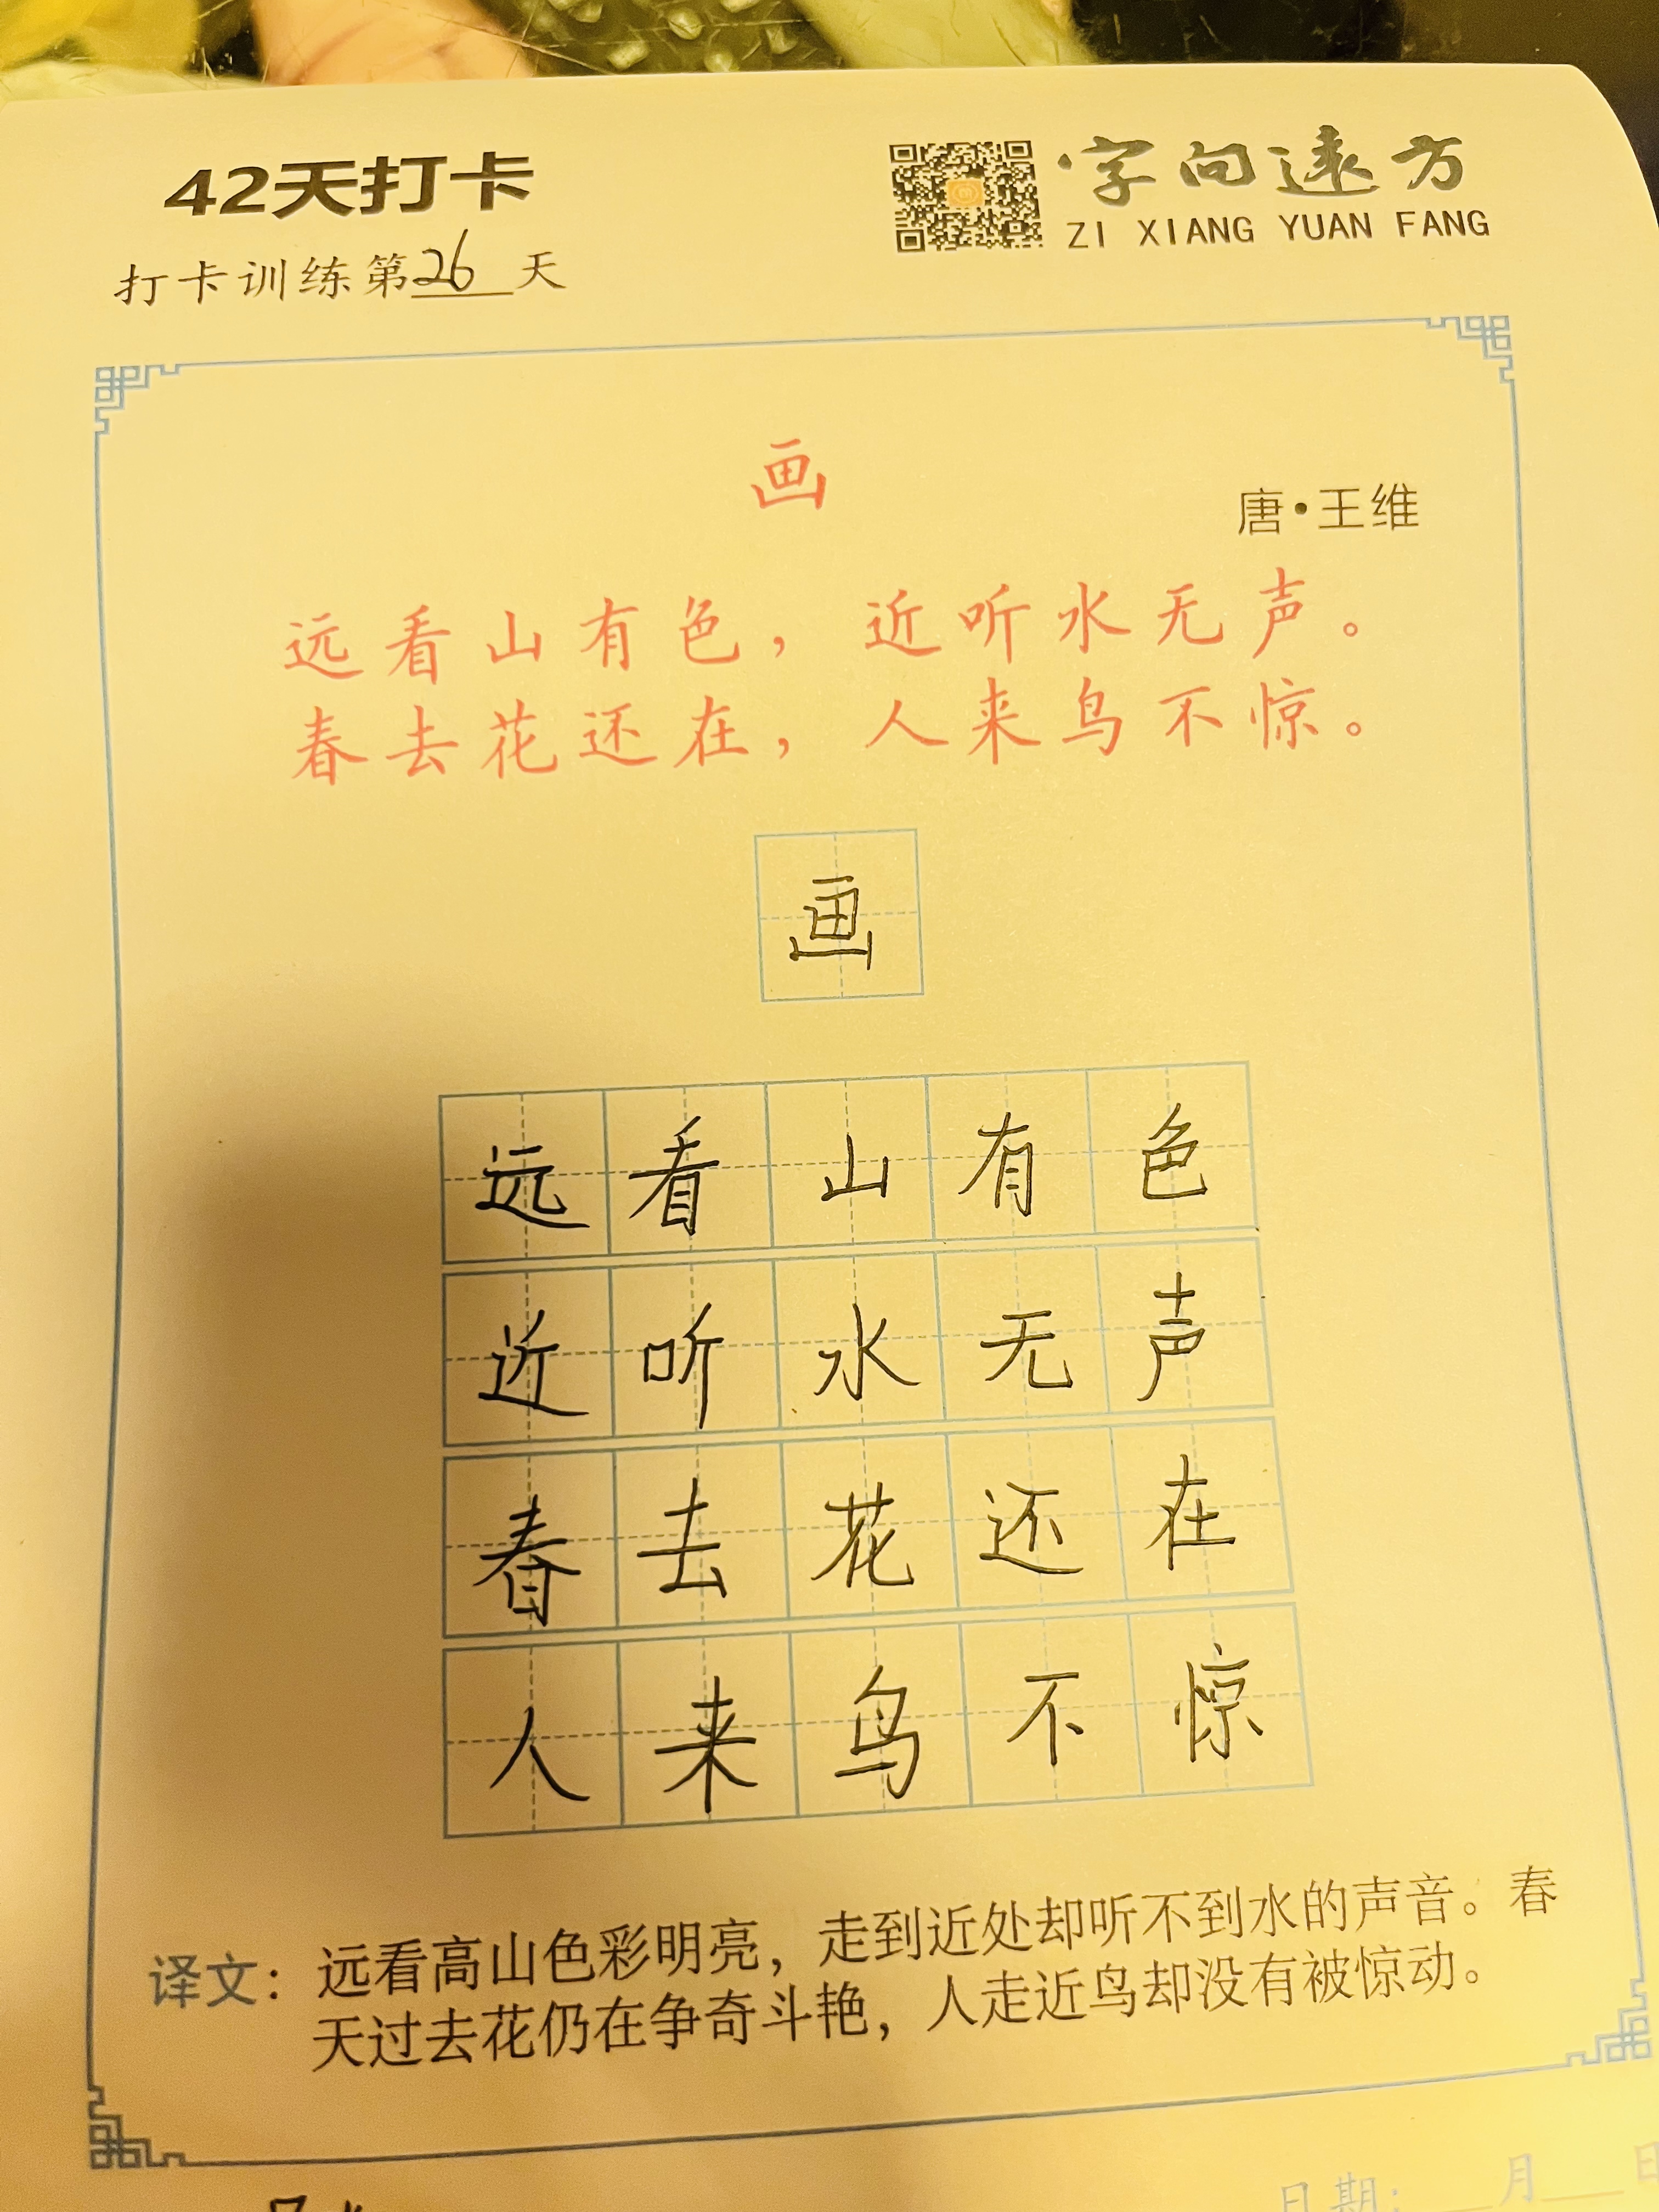 42天打卡
字向远方
ZI XIANG YUAN FANG
打卡训练第26天
画
唐·王维
远看山有色，近听水无声。
春去花还在，人来鸟不惊。
画
远看山有色
近听水无声
春去花还在
人来鸟不惊
译文：远看高山色彩明亮，走到近处却听不到水的声音。春
天过去花仍在争奇斗艳，人走近鸟却没有被惊动。
日期：____月____日